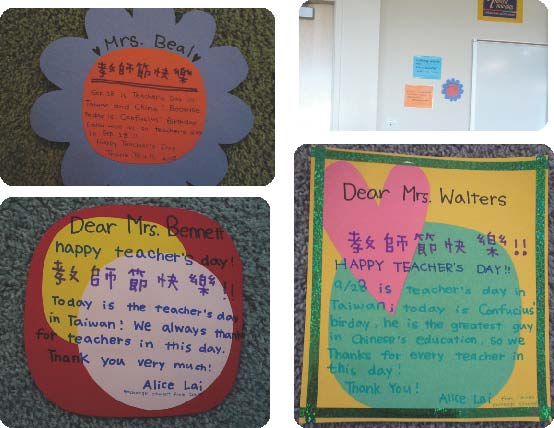 Mrs. Beal
教師節快樂
Sep.28 is Teacher's Day in
Taiwan and China! Because
today is Confucius' Birthday
so teacher's day
in Sep. 28 !!
Happy Teacher's Day
Thank You!!
Dear Mrs. Bennett
happy teacher's day!
教師節快樂!!
Today is the teacher's day
in Taiwan! We always thank
for teachers in this day.
Thank you very much!
Alice Lai
exchange student from
Dear Mrs. Walters
教師節快樂!!
HAPPY TEACHER'S DAY!!
9/28 is teacher's day in
Taiwan, today is Confucius'
birday, he is the greatest guy
in Chinese's education, so we
Thanks for every teacher in
this day!
Thank You!
Alice Lai from
exchange student